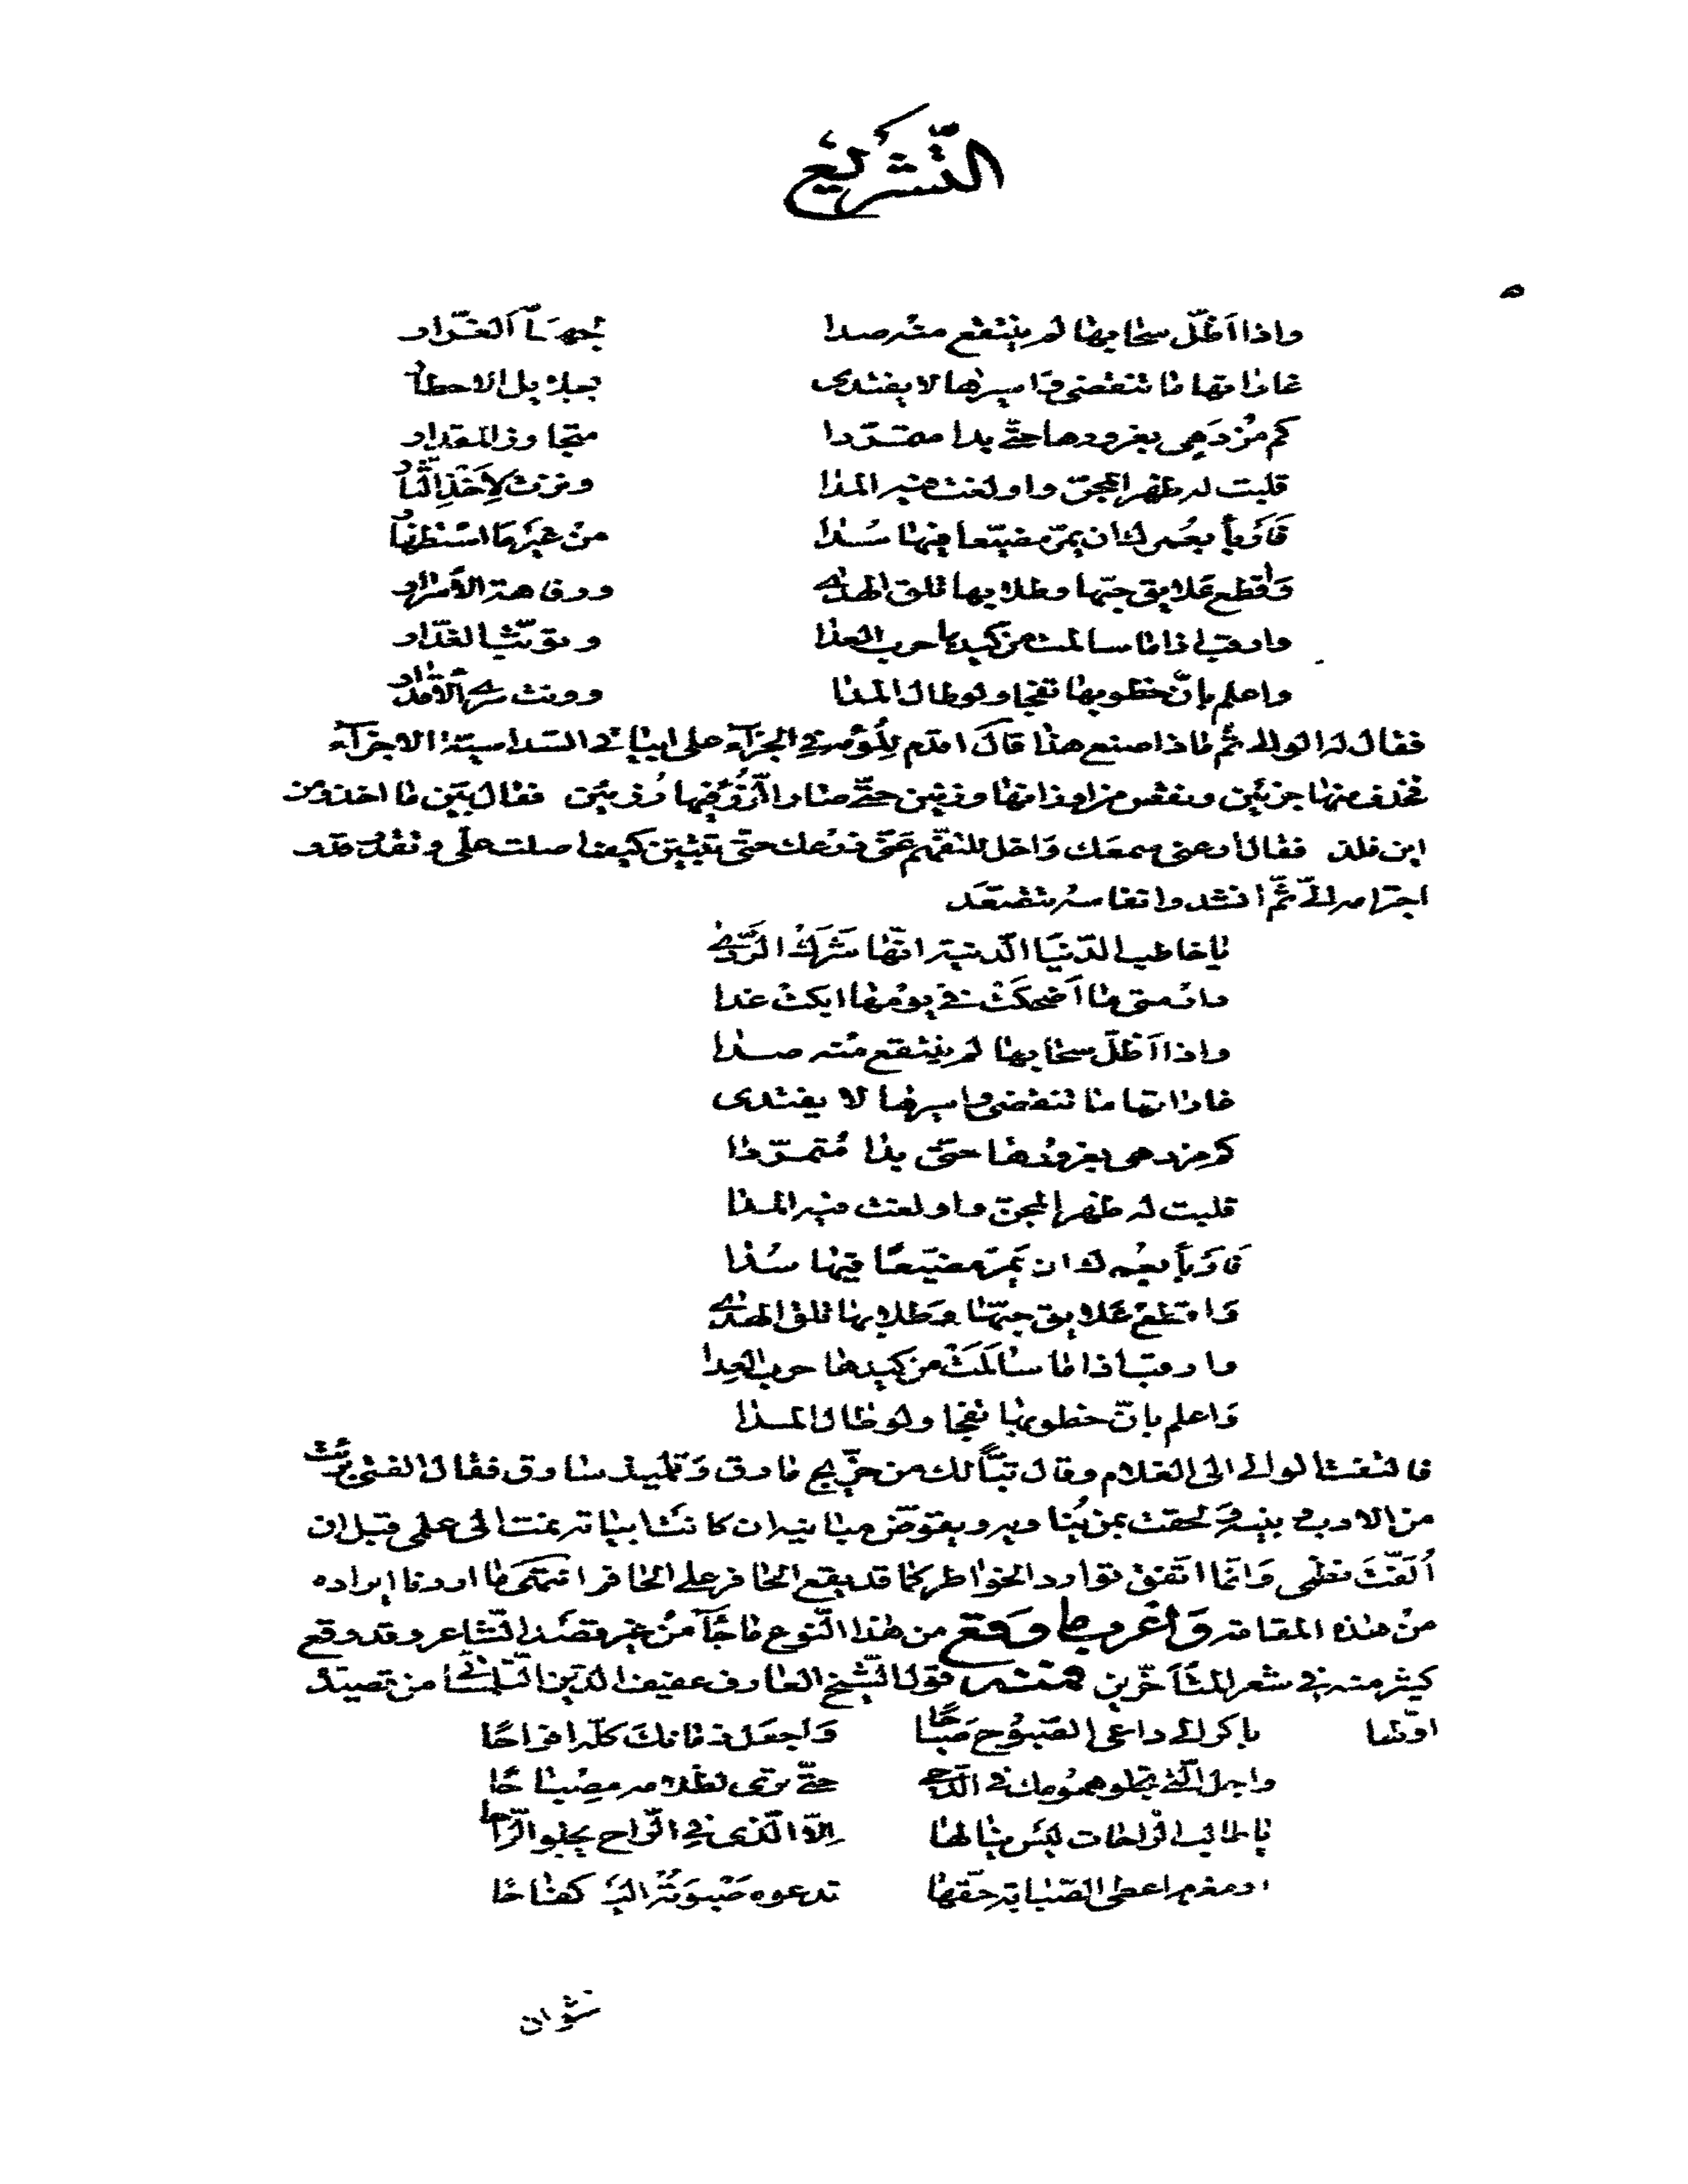 التَّشريع
واذا اَظلّ سحابها لم ينتقع منه صدا لجهَامِهِ الغَرّار
غاراتها ما تنقضي واسيرها لا يفتدى بجلايل الاخطار
كم مُزدَهى بغرورها حتّى بدا متمرّدا متجاوز المقدار
قلبت له ظهر المجنّ واولغت فيه المدا ونزت لِاَخذ الثار
فَاربَأ بعُمرك ان يمرّ مضيّعا فيها سُدا من غير ما استظهار
وَاقطع عَلايق حبّها وطلابها تلق الهدى ورفاهة الاسرار
وارقب اذا ما سالمت من كيدها حرب العدا وتوثّب الغدّار
واعلم بانّ خطوبها تفجا ولو طال المدا وونت سرى الاقدار
فقال له الوالي ثمّ ماذا صنع هذا قال اقدم لِلُؤمه في الجزآء على ابياتي السداسية الاجزآء
فحذف منها جزئين ونقص من اوزانها وزنين حتّى صار الرُّزءُ فيها رُزئين فقال بيّن ما اخذ ومن
اين فلذ فقال ارعني سمعَك وَاخل للتفهّم عَنّي ذرعك حتى تتبيّن كيف اصلت علي وتقدر قدر
اجترامه اليّ ثمّ انشد وانفاسه تتصَعّد
يا خاطب الدّنيَا الدّنية انّها شَرَكُ الرّدى
دار متى ما اَضحكَتْ في يومها ابكت غدا
واذا اَظلّ سحابها لم ينتقع منه صدا
غاراتها ما تنقضي واسيرها لا يفتدى
كم مزدهى بغرورها حتى بدا مُتمرّدا
قلبت له ظهر المجنّ واولغت فيه المدا
فَاربَأ بعُمرك ان يَمرّ مضيّعًا فيها سُدا
وَاقطع عَلايق حبّها وَطلابها تلق الهدى
وارقب اذا ما سالَمَتْ من كيدها حرب العِدا
وَاعلم بانّ خطوبها تفجا ولو طال المدا
فالتفت الوالي الى الغلام وقال تبًّا لك من خرّيج مارق وَتلميذ سارق فقال الفتى برئت
من الادب وبنيه ولحقت بمن يُناويه ويقوّض مبانيه ان كانت ابياته نمت الى علمي قبل ان
اُلفّتَ نظمي وَانّما اتّفق توارد الخواطر كما قد يقع الحافر على الحافر انتهى ما اردنا ايراده
من هذه المقامة وَاغرب ما وَقع من هذا النّوع ما جآء من غير قصد الشاعر وقد وقع
كثير منه في شعر المتاَخّرين منه قول الشّيخ العارف عفيف الدّين التلمساني من قصيدة
اوّلها باكر الى داعي الصّبوُح صَباحًا وَاجعَل زمانكَ كلّه افراحًا
واجل الّتي تجلو همومك في الدّجى حتّى ترى لظلامه مِصْباحًا
يا طالب الرّاحات ليَس ينالها اِلّا الّذي في الرّاح يجلو الرّاحا
او مغرم اعطى الصّبابة حقّها تدعوه صَبْوَتُهُ اليه كفاحًا
نشوان